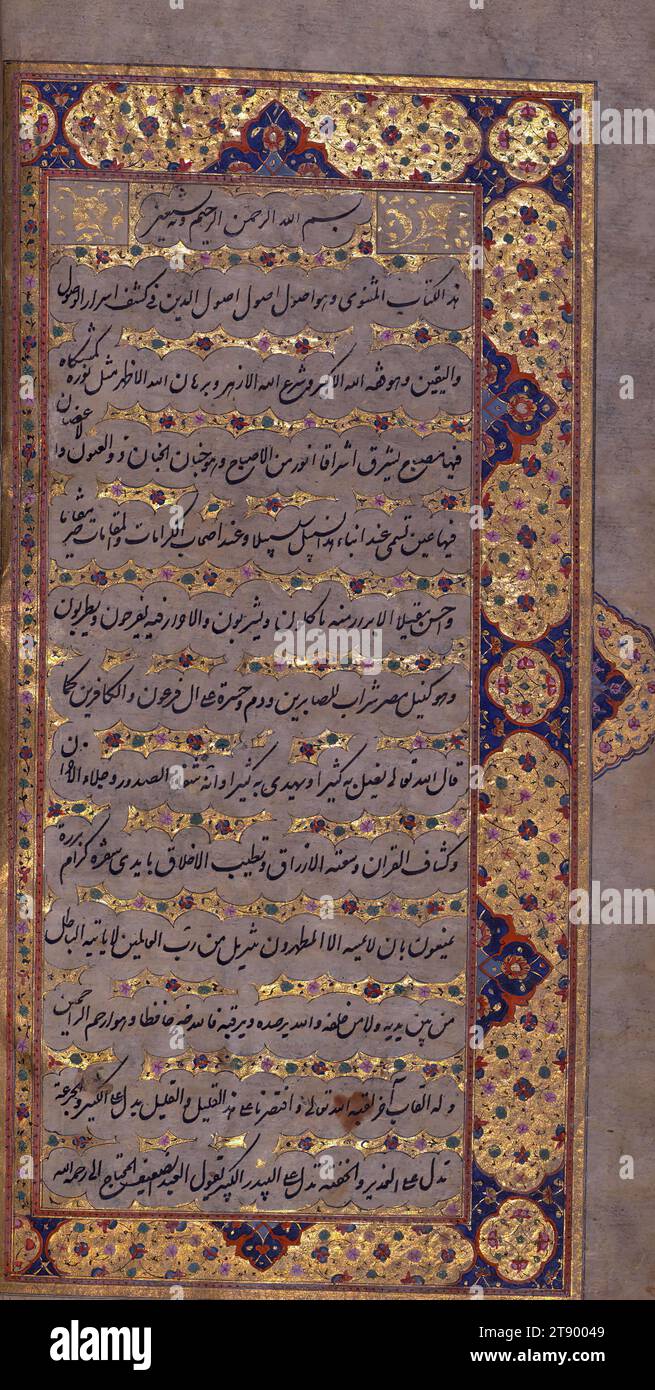 بسم الله الرحمن الرحیم وبه نستعین
هذا الکتاب المثنوی وهو اصول اصول اصول الدین فی کشف اسرار الوصول
والیقین وهو فقه الله الاکبر وشرع الله الازهر وبرهان الله الاظهر مثل نوره کمشکاة
فیها مصباح یشرق اشراقا انور من الاصباح وهو جنان الجنان ذو العیون والاغصان
فیها عین تسمی عند ابناء هذا السبیل سلسبیلا وعند اصحاب الکرامات والمقامات خیر مقاما
واحسن مقیلا الابرار منه یاکلون ویشربون والاحرار فیه یفرحون ویطربون
وهو کنیل مصر شراب للصابرین ودم وحسرة علی ال فرعون والکافرین کما
قال الله تعالی یضل به کثیرا ویهدی به کثیرا وانه شفاء الصدور وجلاء الاحزان
وکشاف القران وسعة الارزاق وتطییب الاخلاق بایدی سفرة کرام بررة
یمنعون بان لا یمسه الا المطهرون تنزیل من رب العالمین لا یاتیه الباطل
من بین یدیه ولا من خلفه والله یرصده ویرقبه فالله خیر حافظا وهو ارحم الراحمین
وله القاب اخر لقبه الله تعالی واقتصرنا علی هذا القلیل والقلیل یدل علی الکثیر والجرعة
تدل علی الغدیر والحفنة تدل علی البیدر الکبیر یقول العبد الضعیف المحتاج الی رحمة الله
alamy
Image ID: 2T90049
www.alamy.com